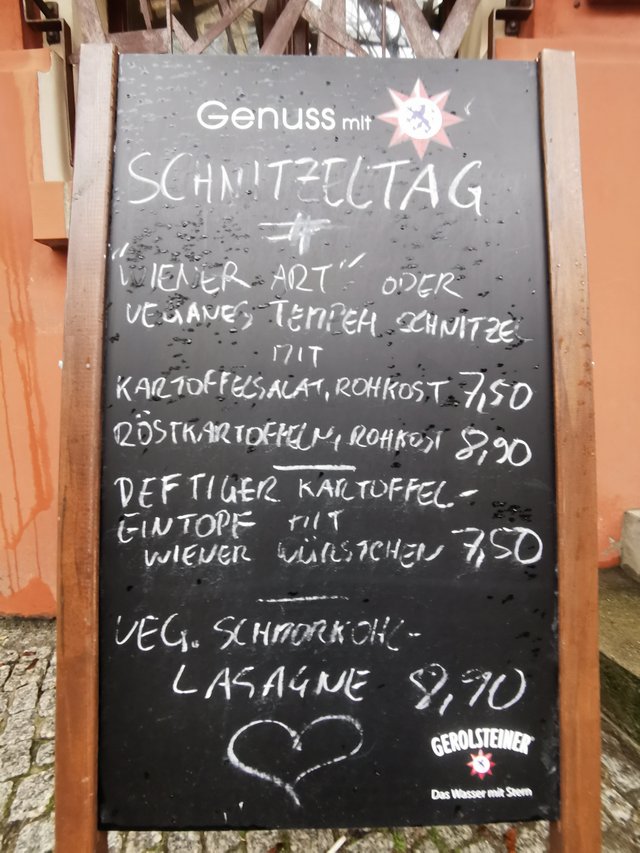 Genuss mit
SCHNITZELTAG
"WIENER ART" ODER
VEGANES TEMPEH SCHNITZEL
MIT
KARTOFFELSALAT, ROHKOST 7,50
RÖSTKARTOFFELN, ROHKOST 8,90
DEFTIGER KARTOFFEL-
EINTOPF MIT
WIENER WÜRSTCHEN 7,50
VEG. SCHMORKOHL-
LASAGNE 8,90
GEROLSTEINER
Das Wasser mit Stern